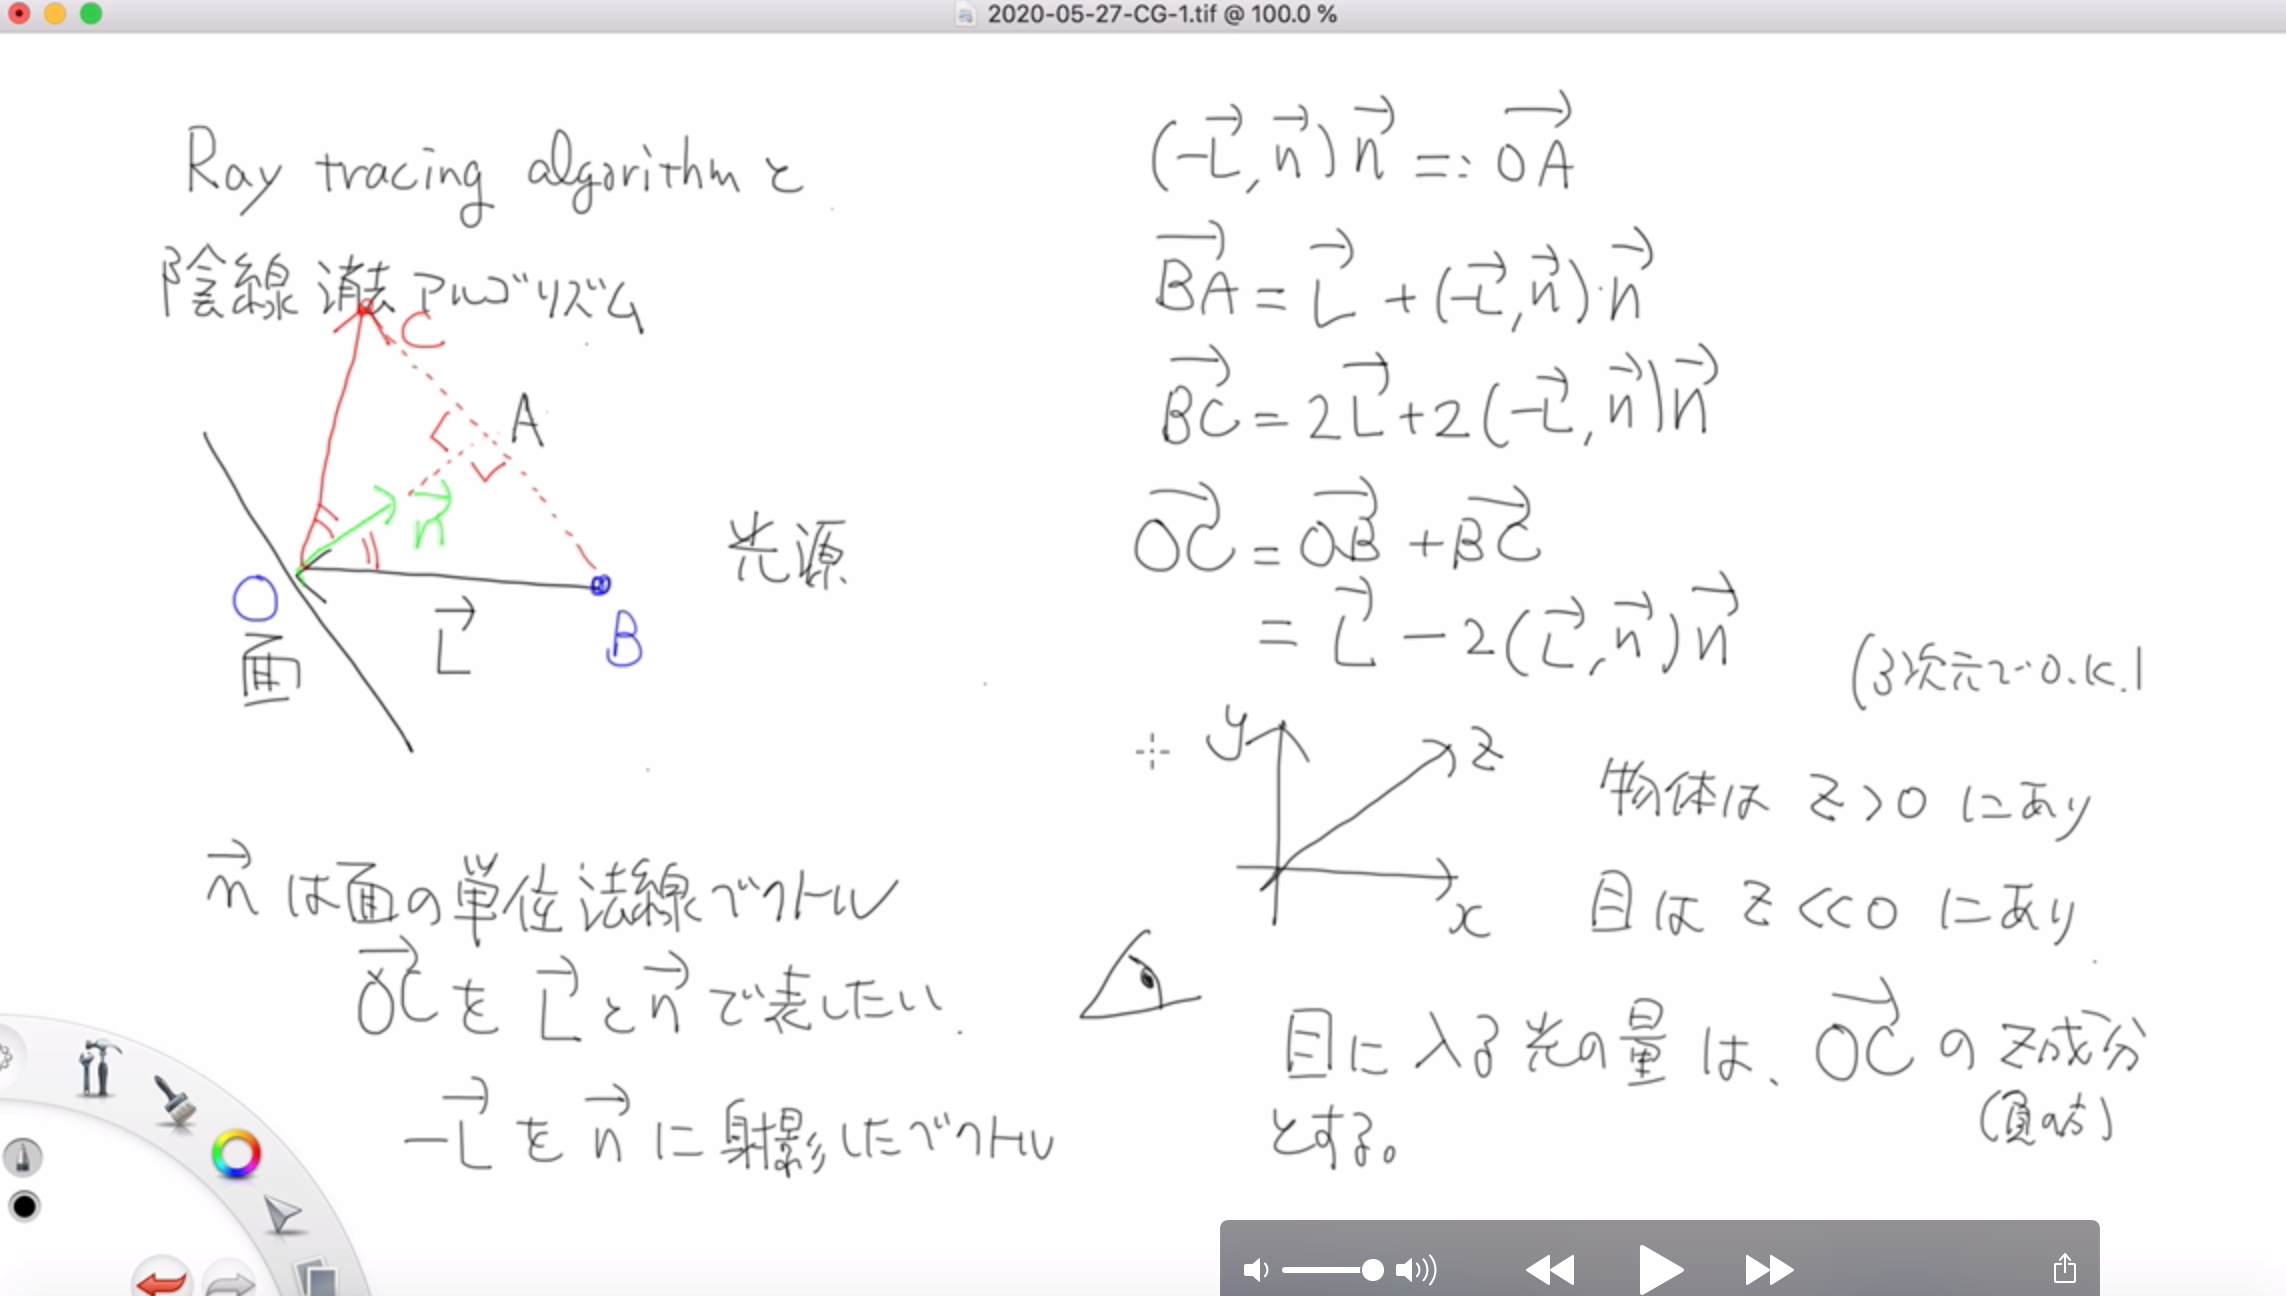 2020-05-27-CG-1.tif @ 100.0 %
Ray tracing algorithm と
陰線消去アルゴリズム
C
A
n⃗
光源
O
B
面
L⃗
n⃗ は面の単位法線ベクトル
OC⃗ を L⃗ と n⃗ で表したい.
-L⃗ を n⃗ に射影したベクトル
(-L⃗, n⃗) n⃗ =: OA⃗
BA⃗ = L⃗ + (-L⃗, n⃗)・n⃗
BC⃗ = 2L⃗ + 2(-L⃗, n⃗) n⃗
OC⃗ = OB⃗ + BC⃗
= L⃗ - 2(L⃗, n⃗) n⃗
(3次元で O.K.)
y
z
x
物体は z > 0 にあり
目は z << 0 にあり
目に入る光の量は、OC⃗ の z成分
(負の方)
とする。